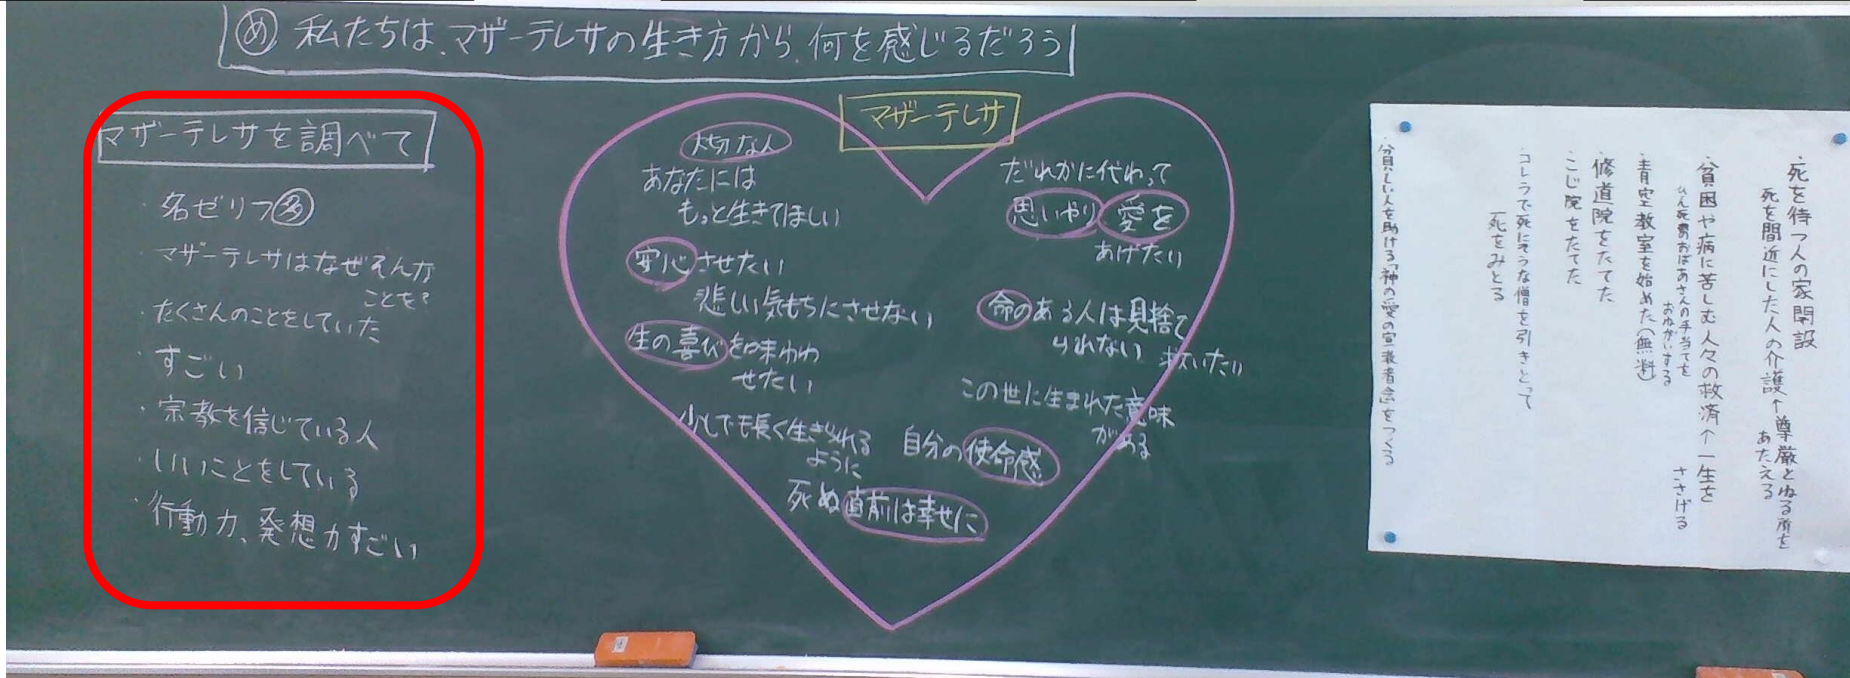 め 私たちは、マザーテレサの生き方から、何を感じるだろう
マザーテレサを調べて
・名ゼリフ多
・マザーテレサはなぜそんな
ことを?
・たくさんのことをしていた
・すごい
・宗教を信じている人
・いいことをしている
・行動力、発想力すごい
マザーテレサ
大切な人
あなたには
もっと生きてほしい
安心させたい
悲しい気もちにさせない
生の喜びを味わわ
せたい
少しでも長く生きられる
ように
死ぬ直前は幸せに
だれかに代わって
思いやり 愛を
あげたい
命のある人は見捨て
られない
救いたい
この世に生まれた意味
がある
自分の使命感
・死を待つ人の家開設
死を間近にした人の介護↑尊厳とねる所を
あたえる
・貧困や病に苦しむ人々の救済↑一生を
ささげる
ひん死のおばあさんの手当てを
おねがいする
・青空教室を始めた(無料)
・修道院をたてた
・こじ院をたてた
・コレラで死にそうな僧を引きとって
死をみとる
・貧しい人を助ける「神の愛の宣教者会」をつくる